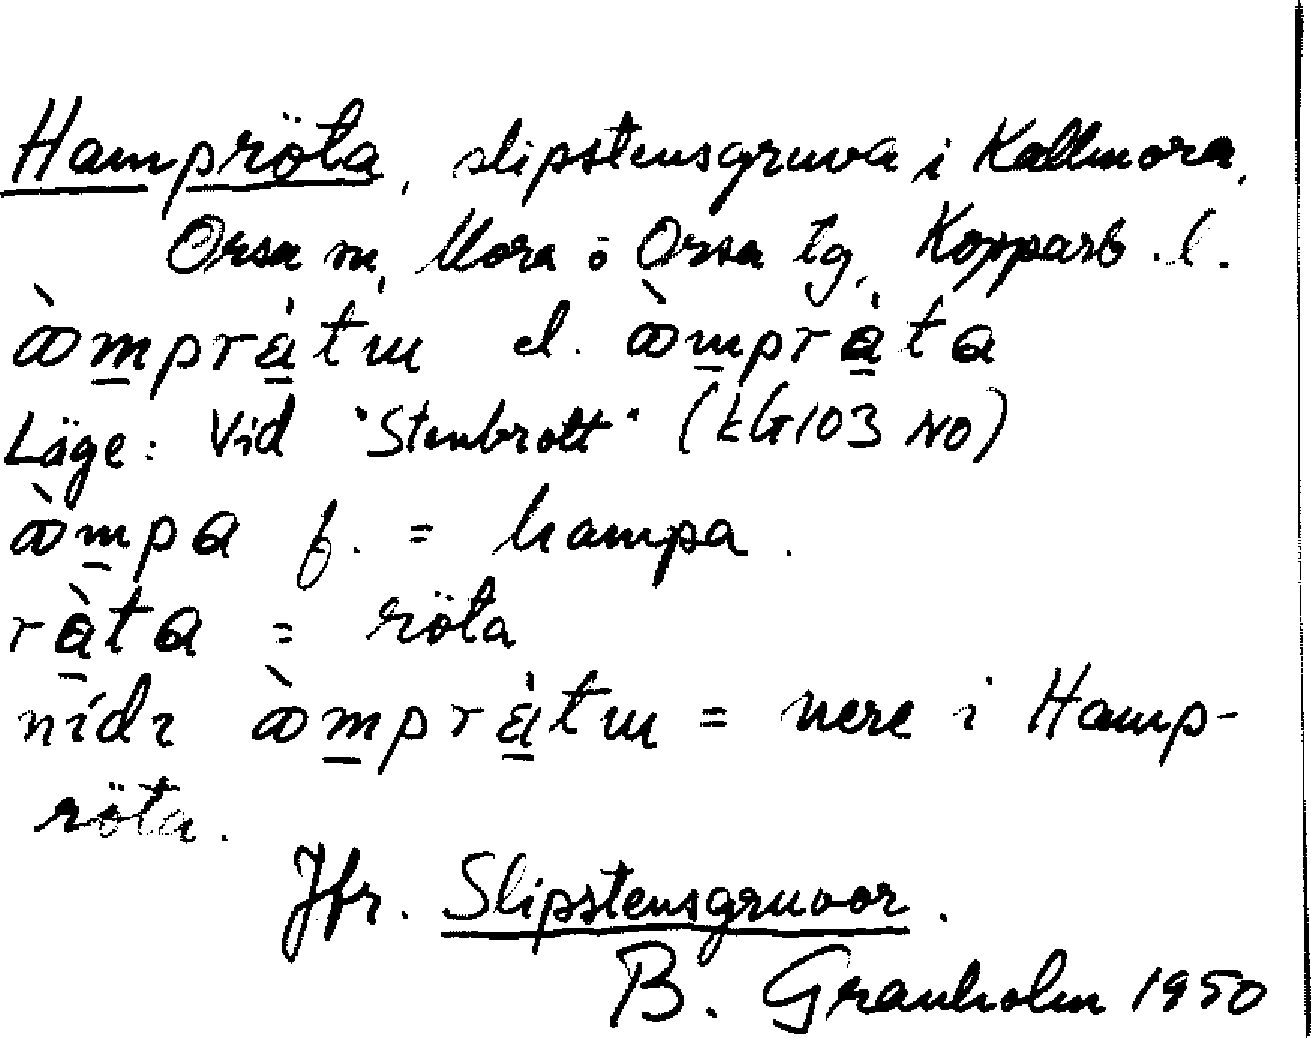 Hampröta, slipstensgruva i Kallmora,
Orsa sn, Mora o Orsa tg, Kopparb. l.
el.
Läge: Vid "Stenbrott" (kG103 NO)
f. = hampa.
ràta = röta
= nere i Hamp-
röta.
Jfr. Slipstensgruvor.
B. Granholm 1950